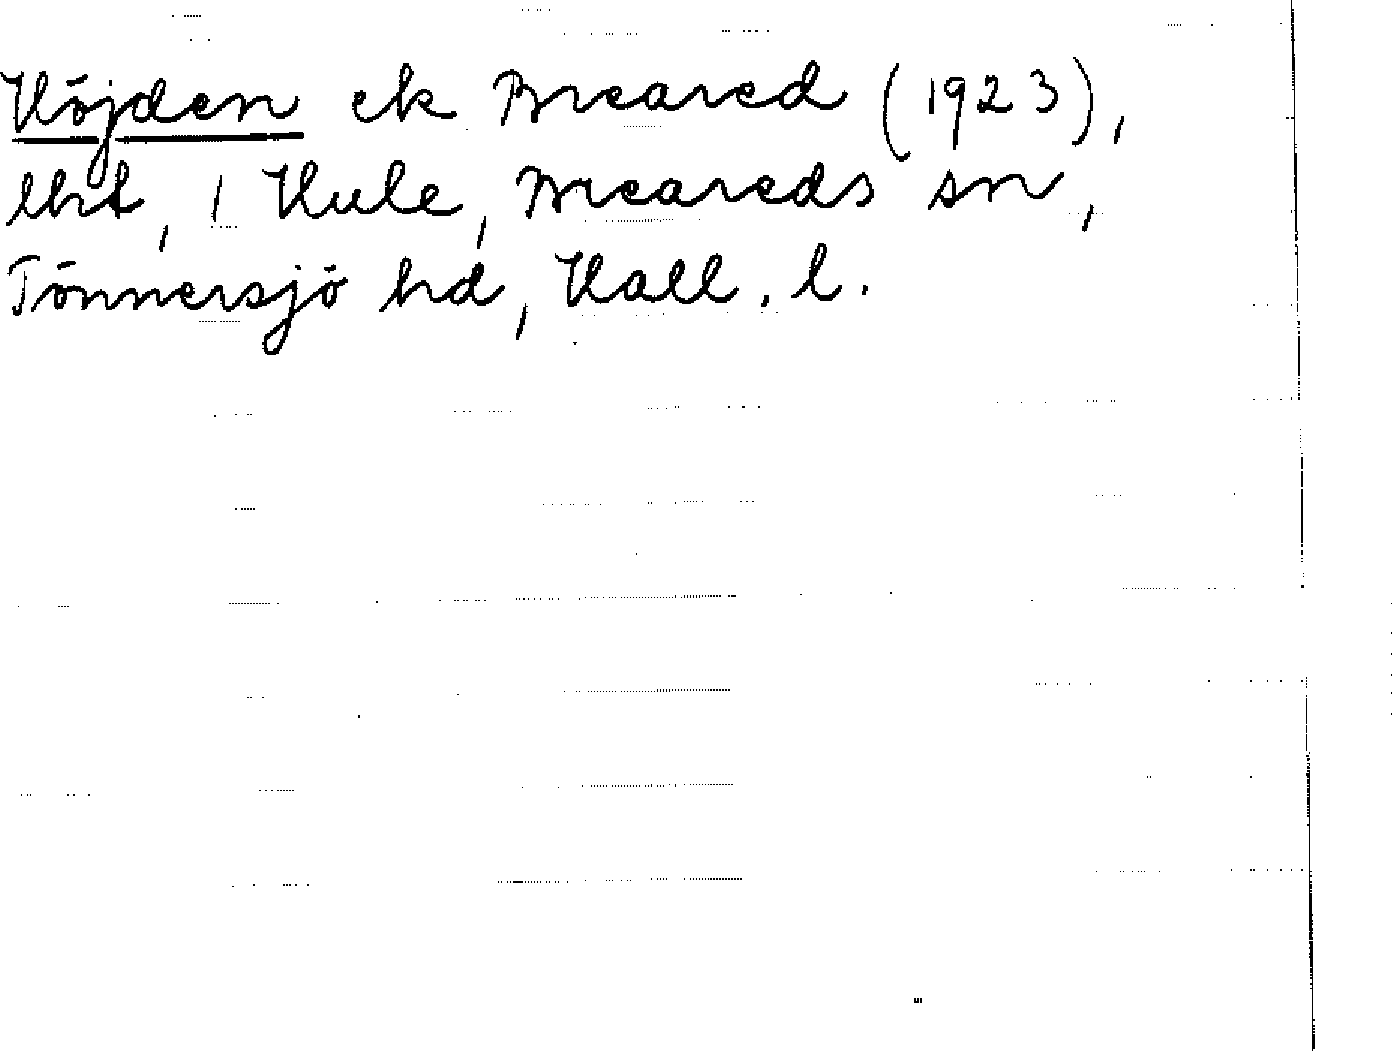 Höjden ek Breared (1923),
lht, 1 Hule, Breareds sn,
Tönnersjö hd, Hall. l.